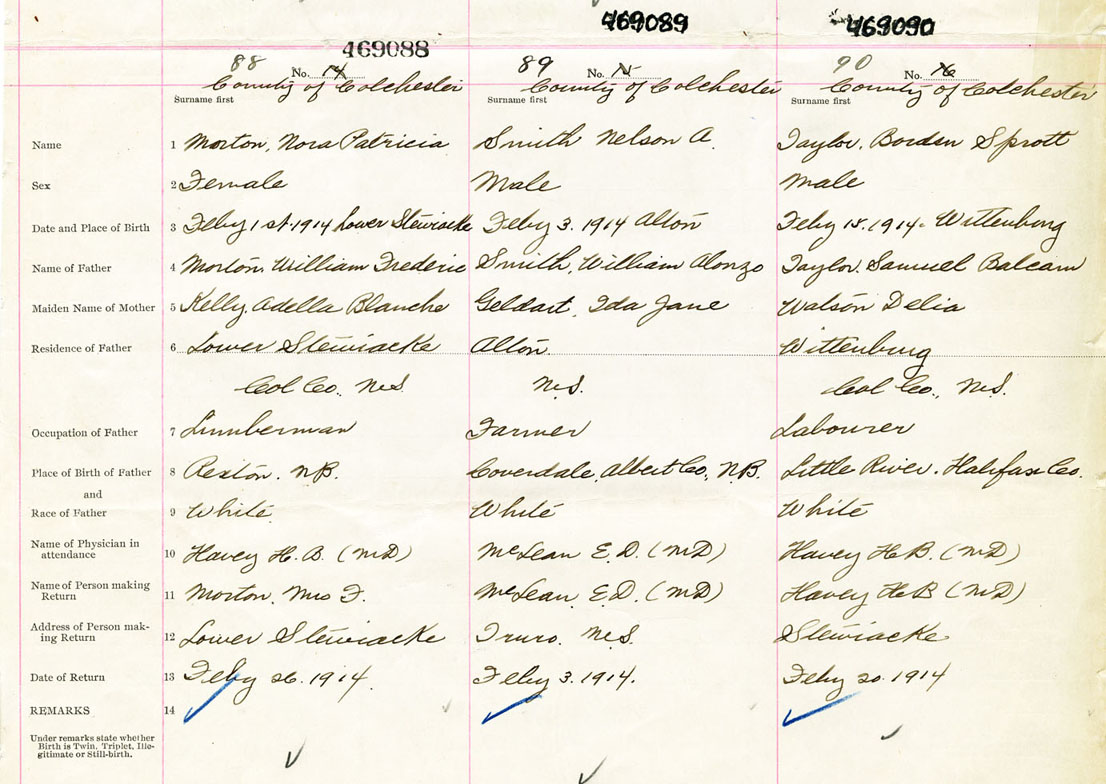 469088 469089 469090
88 No. 14 89 No. 15 90 No. 16
County of Colchester County of Colchester County of Colchester
Surname first Surname first Surname first
Name 1 Morton, Nora Patricia Smith Nelson A. Taylor, Borden Sprott
Sex 2 Female Male Male
Date and Place of Birth 3 Feby 1st. 1914 Lower Stewiacke Feby 3. 1914 Alton Feby 15. 1914. Wittenburg
Name of Father 4 Morton, William Frederic Smith, William Alonzo Taylor, Samuel Balcam
Maiden Name of Mother 5 Kelly, Adella Blanche Geldart, Ida Jane Watson Delia
Residence of Father 6 Lower Stewiacke Alton. Wittenburg
Col Co., N.S. N.S. Col Co., N.S.
Occupation of Father 7 Lumberman Farmer Labourer
Place of Birth of Father 8 Rexton. N.B. Coverdale, Albert Co., N.B. Little River. Halifax Co.
and
Race of Father 9 White White White
Name of Physician in
attendance 10 Havey H. B. (MD) McLean E.D. (MD) Havey H.B. (MD)
Name of Person making
Return 11 Morton, Mrs F. McLean, E.D. (MD) Havey H.B (MD)
Address of Person mak-
ing Return 12 Lower Stewiacke Truro. N.S. Stewiacke
Date of Return 13 Feby 26. 1914. Feby 3. 1914. Feby 20. 1914
REMARKS 14
Under remarks state whether
Birth is Twin, Triplet, Ille-
gitimate or Still-birth.